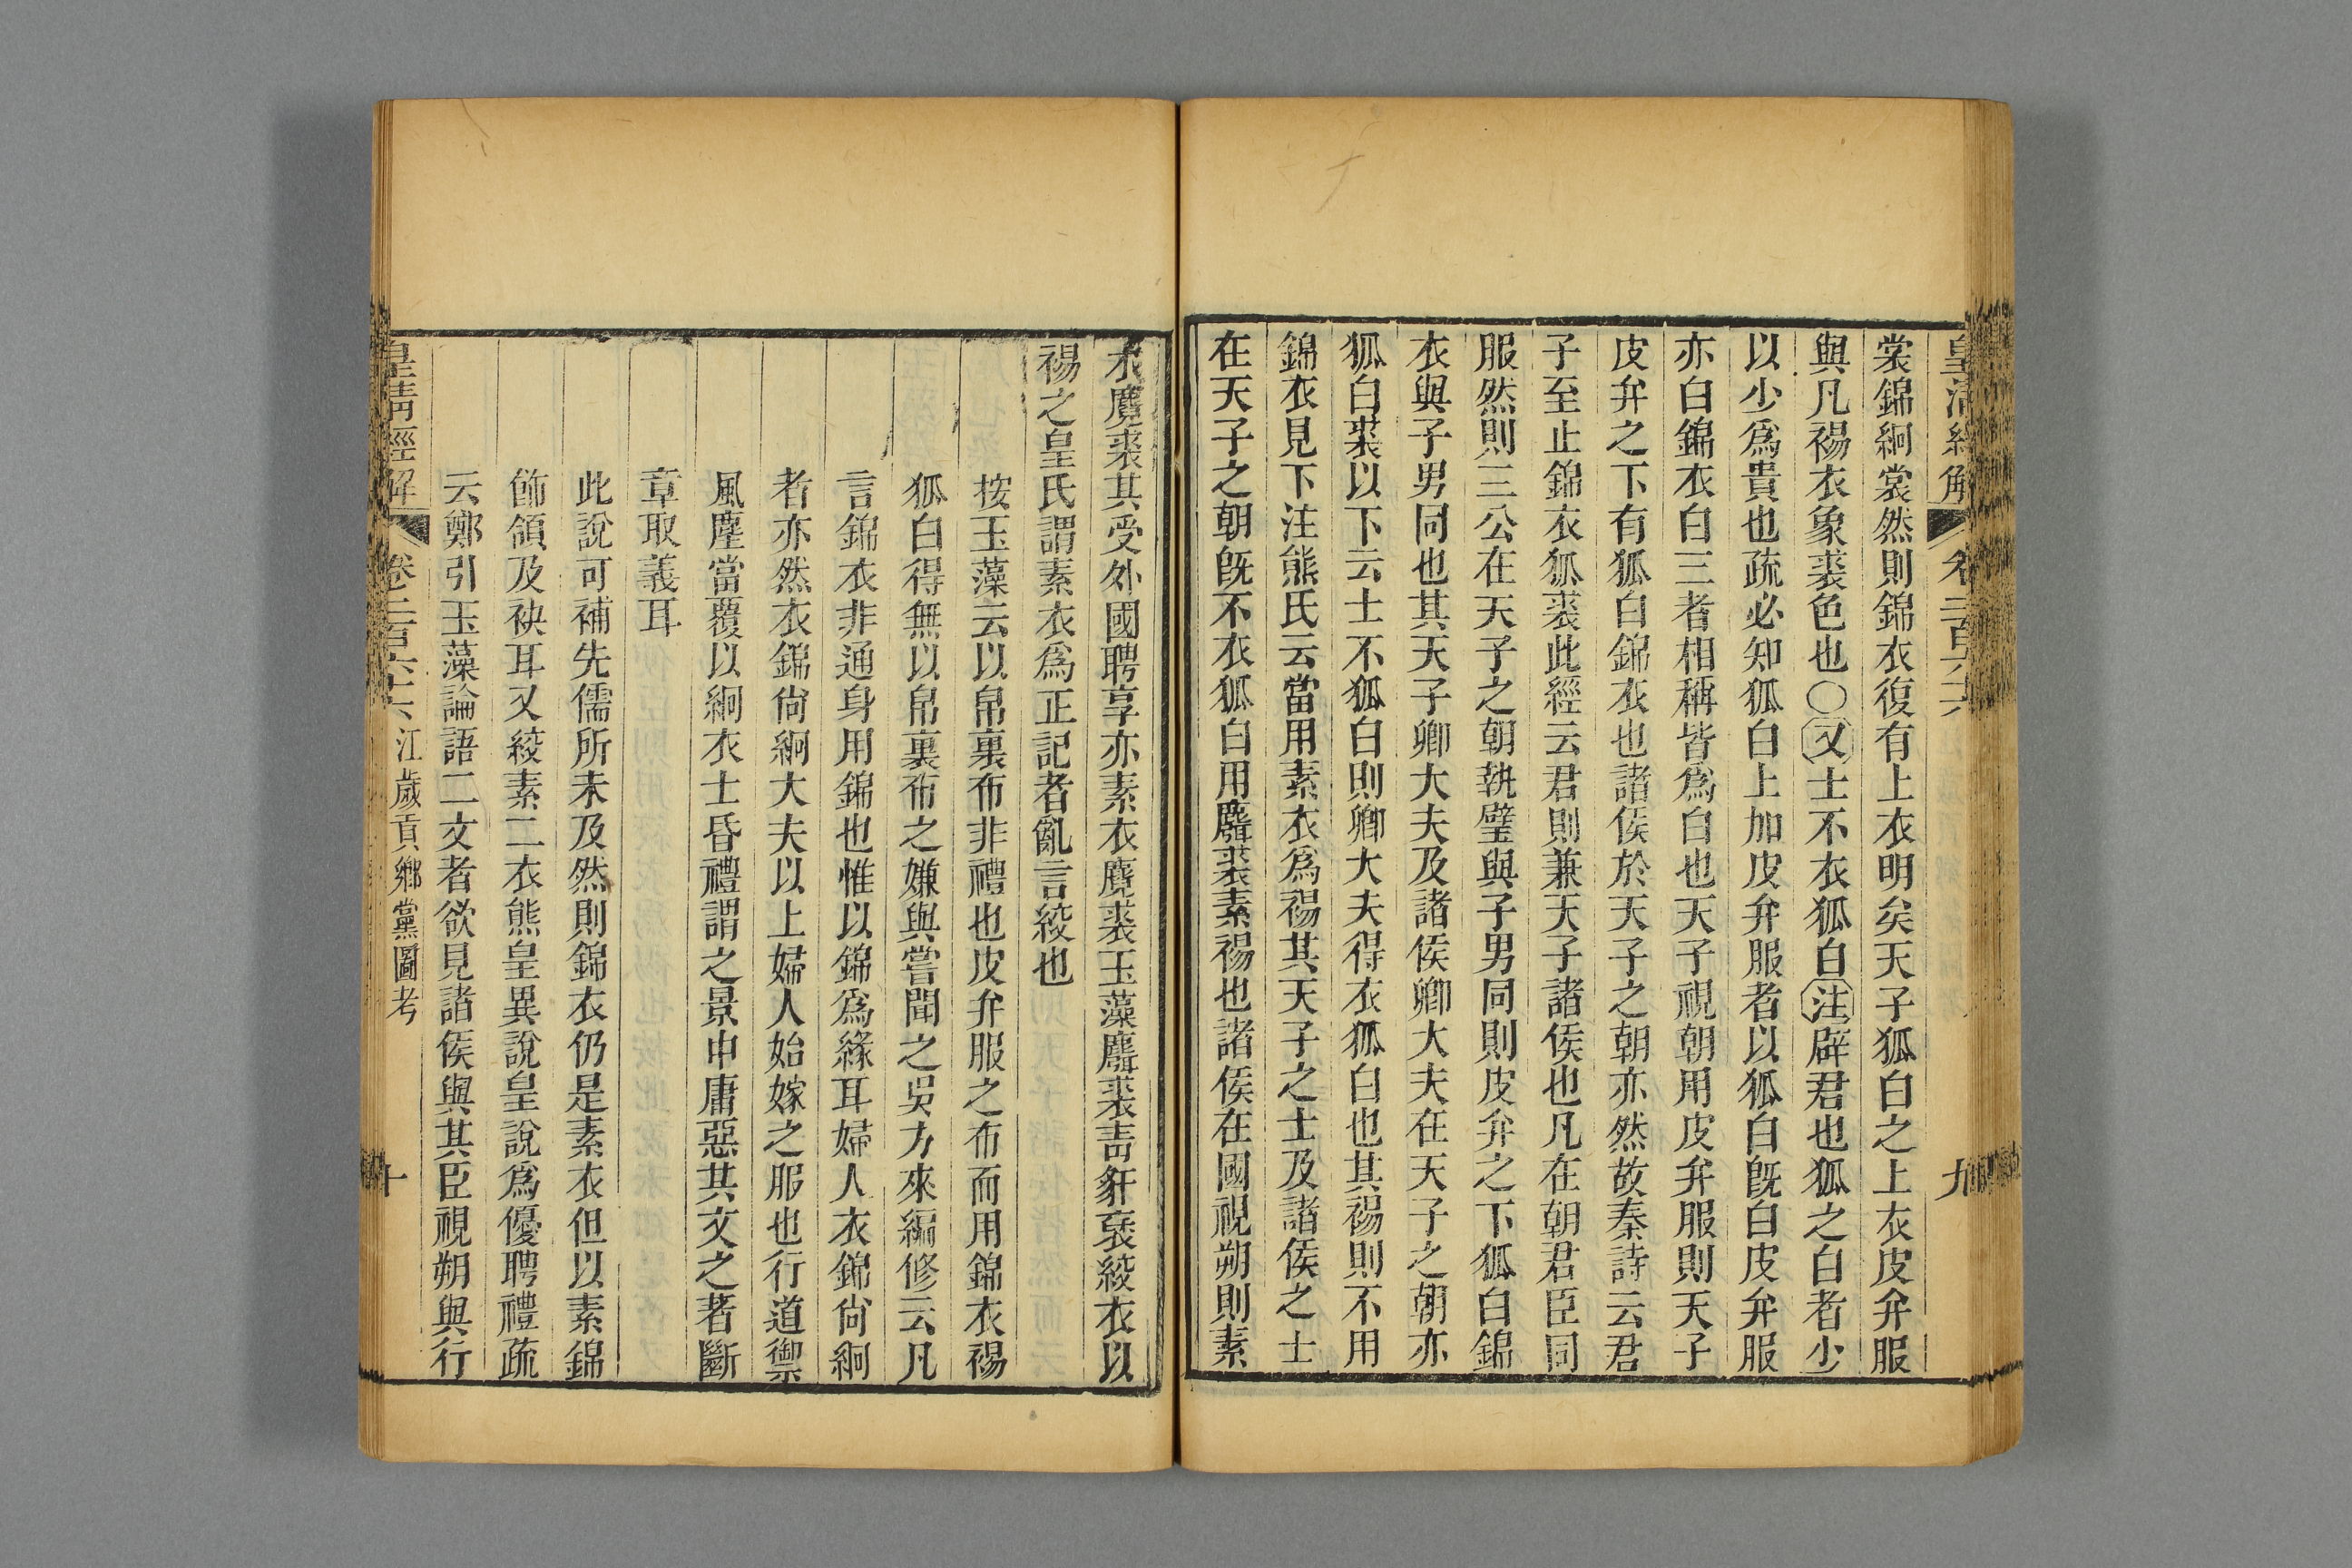 皇清經解 卷二百六十六 九
裳錦絅裳然則錦衣復有上衣明矣天子狐白之上衣皮弁服
與凡裼衣象裘色也〇又士不衣狐白注辟君也狐之白者少
以少爲貴也疏必知狐白上加皮弁服者以狐白旣白皮弁服
亦白錦衣白三者相稱皆爲白也天子視朝用皮弁服則天子
皮弁之下有狐白錦衣也諸侯於天子之朝亦然故秦詩云君
子至止錦衣狐裘此經云君則兼天子諸侯也凡在朝君臣同
服然則三公在天子之朝執璧與子男同則皮弁之下狐白錦
衣與子男同也其天子卿大夫及諸侯卿大夫在天子之朝亦
狐白裘以下云士不狐白則卿大夫得衣狐白也其裼則不用
錦衣見下注熊氏云當用素衣爲裼其天子之士及諸侯之士
在天子之朝旣不衣狐白用麛裘素裼也諸侯在國視朔則素
衣麑裘其受外國聘享亦素衣麑裘玉藻麛裘靑豻褎絞衣以
裼之皇氏謂素衣爲正記者亂言絞也
按玉藻云以帛裏布非禮也皮弁服之布而用錦衣裼
狐白得無以帛裏布之嫌與嘗聞之吳方來編修云凡
言錦衣非通身用錦也惟以錦爲緣耳婦人衣錦尙絅
者亦然衣錦尙絅大夫以上婦人始嫁之服也行道禦
風塵當覆以絅衣士昏禮謂之景中庸惡其文之著斷
章取義耳
此說可補先儒所未及然則錦衣仍是素衣但以素錦
飾領及袂耳又絞素二衣熊皇異說皇說爲優聘禮疏
云鄭引玉藻論語二文者欲見諸侯與其臣視朔與行
皇淸經解 卷二百六十六 江歲貢鄕黨圖考 十